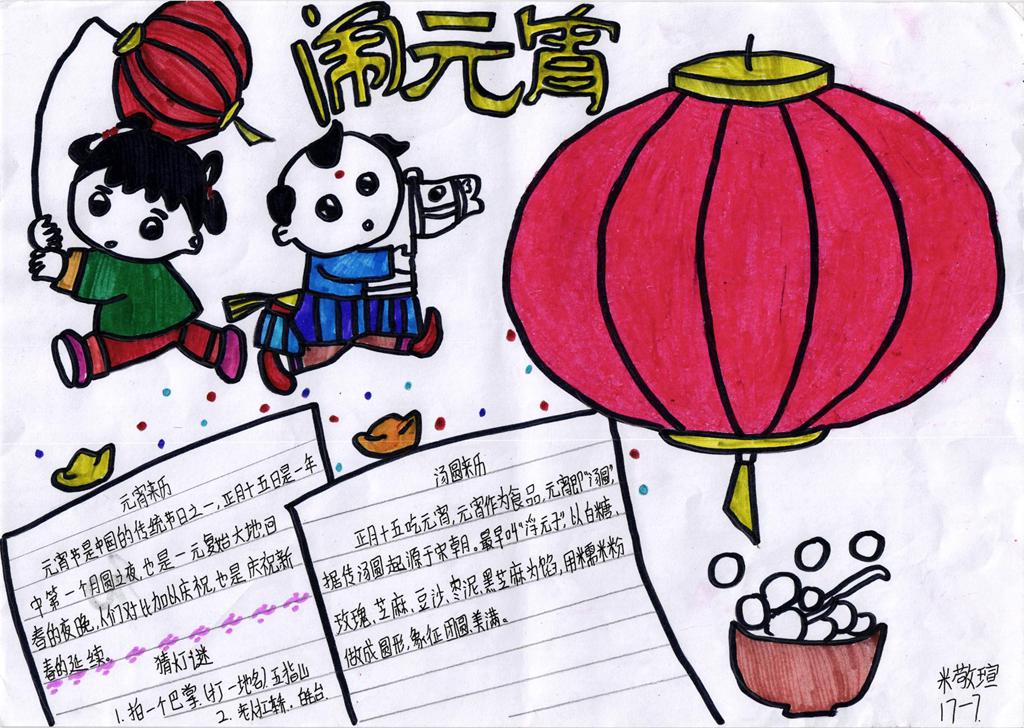 闹元宵
元宵来历
元宵节是中国的传统节日之一,正月十五日是一年
中第一个月圆之夜,也是一元复始大地回
春的夜晚,人们对比加以庆祝,也是庆祝新
春的延续。
猜灯谜
1. 拍一个巴掌(打一地名)五指山
2.
汤圆来历
正月十五吃元宵,元宵作为食品,元宵即"汤圆",
据传汤圆起源于宋朝。最早叫"浮元子",以白糖、
玫瑰、芝麻、豆沙、枣泥、黑芝麻为馅,用糯米粉
做成圆形,象征团圆美满。
米敬瑄
17-7